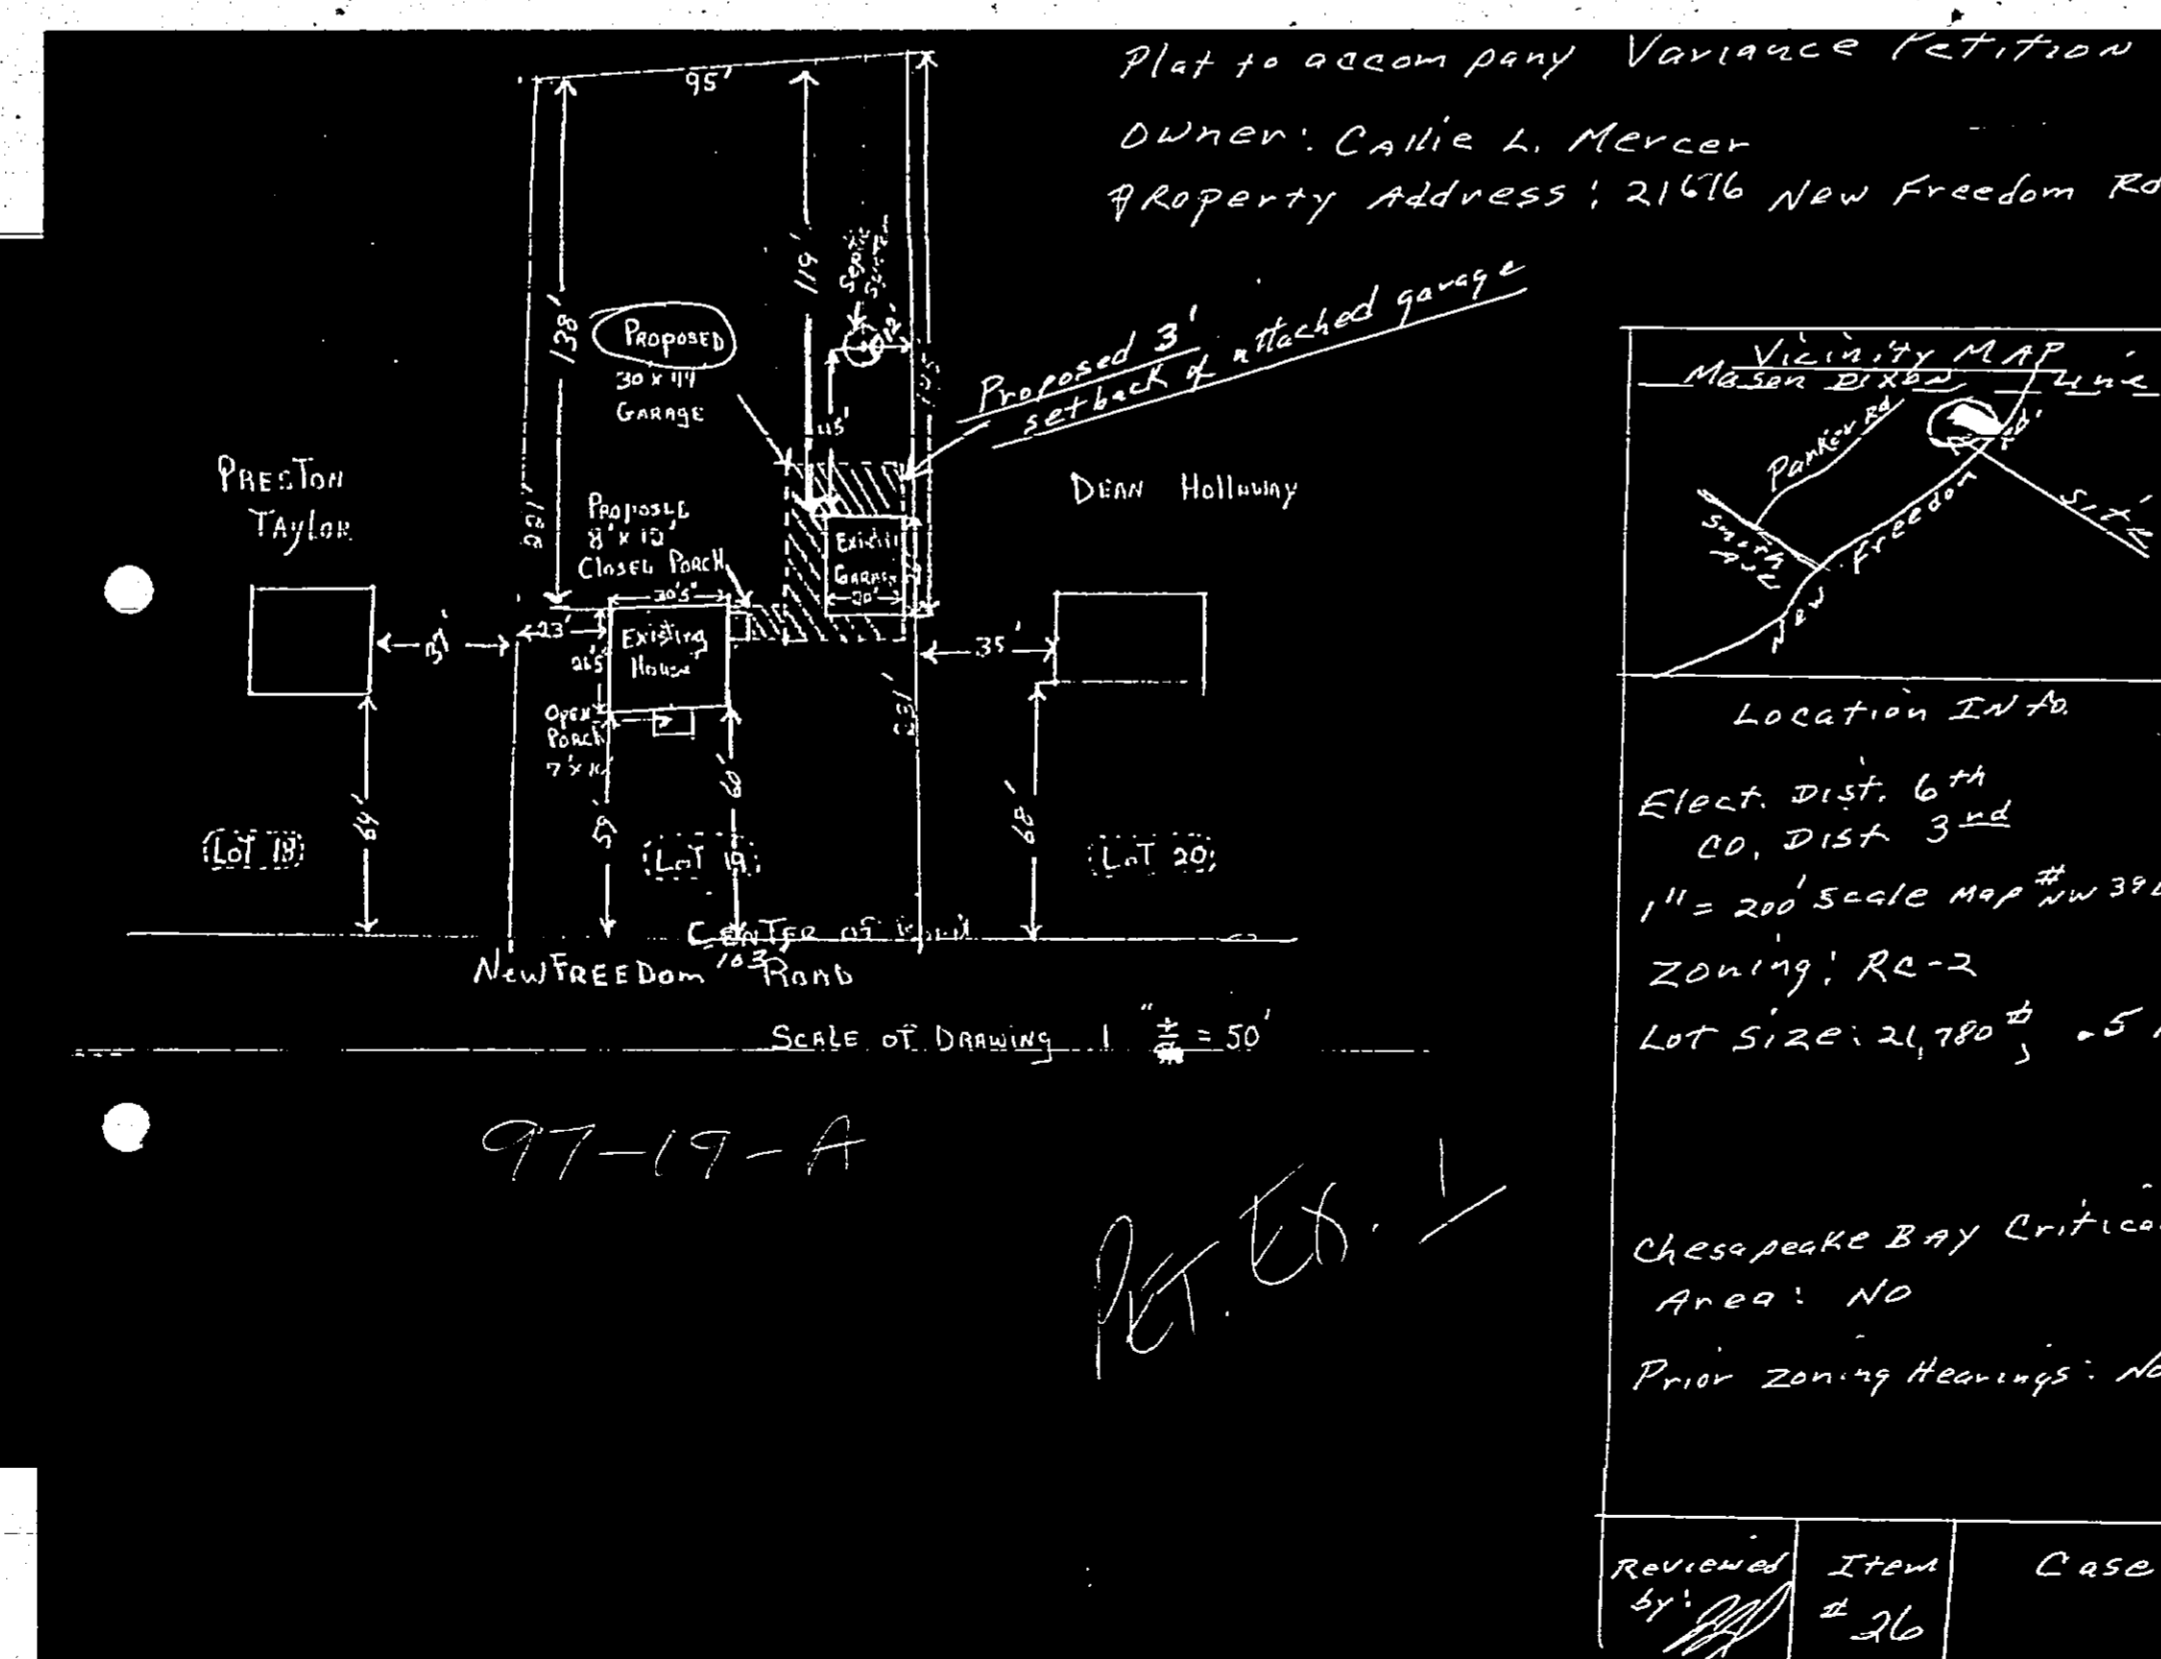 Plat to accompany Variance Petition
Owner: Callie L. Mercer
Property Address: 21616 New Freedom Rd
95'
138'
119'
PROPOSED
30 x 44
GARAGE
12'
45'
Proposed 3'
setback of attached garage
PRESTON
TAYLOR
DEAN Holloway
8' x 12'
CLOSED PORCH
EXISTING
GARAGE
20'
30'5"
23'
Existing
House
OPEN
PORCH
35'
64'
59'
60'
68'
LOT 18
LOT 19
LOT 20
CENTER OF
103'
New FREEDOM ROAD
SCALE OF DRAWING 1" ± = 50'
97-19-A
PET. EX. 1
Vicinity MAP
Mason Dixon Line
New Freedom
Location INfo.
Elect. Dist. 6th
CO. Dist 3rd
1" = 200' scale Map # NW 39
Zoning: RC-2
Lot Size: 21,780 #, .5
Chesapeake BAY Critica
Area: NO
Prior Zoning Hearings: No
Reviewed
by:
Item
# 26
Case